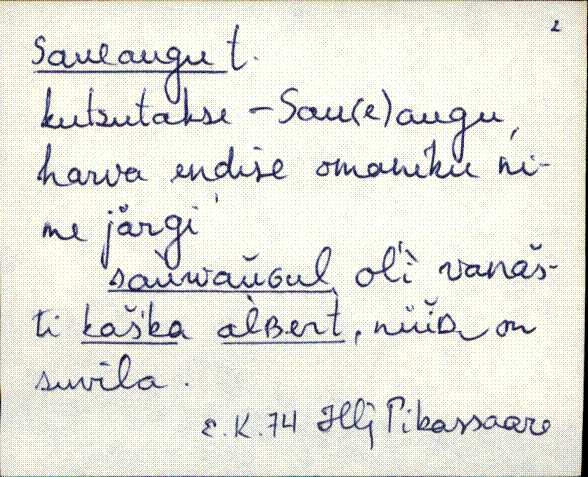 2
Saueaugu t.
kutsutakse - Sau(e)augu,
harva endise omaniku ni-
me järgi
sàuwaŭGul ol'ì vanaš-
ti kaška àlBert, nüüD on
suvila.
E.K.74 Hlj Pikassaare